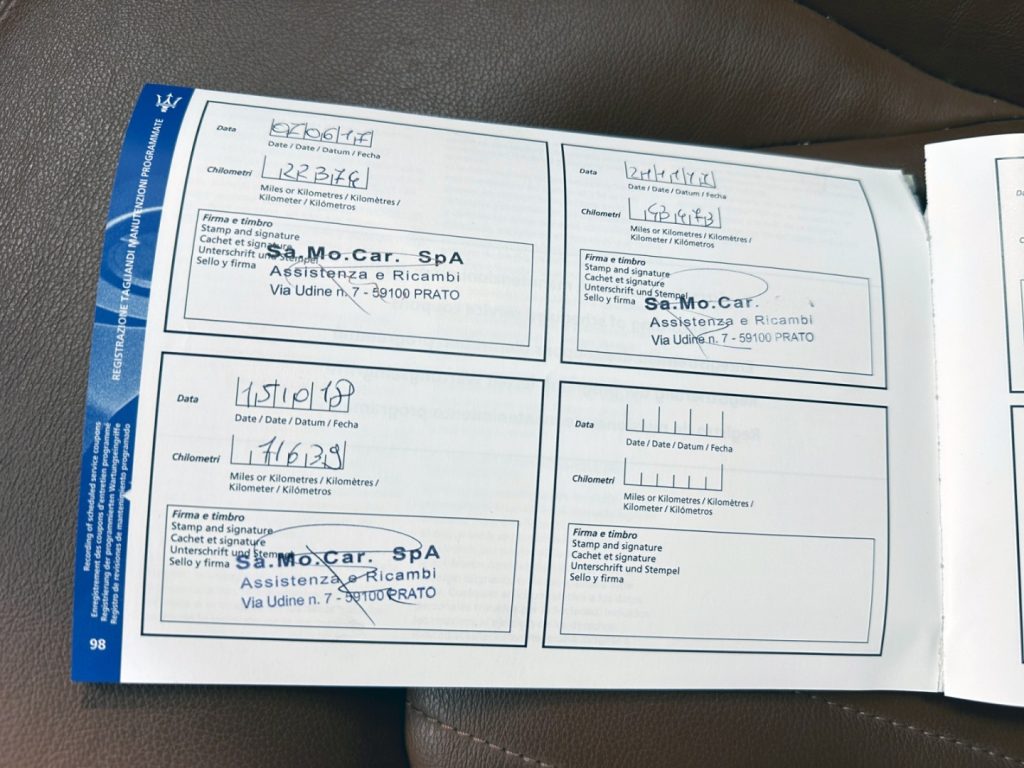 REGISTRAZIONE TAGLIANDI MANUTENZIONI PROGRAMMATE
Recording of scheduled service coupons
Enregistrement des coupons d'entretien programmé
Registrierung der programmierten Wartungseingriffe
Registro de revisiones de mantenimiento programado
98
Data 07 06 17
Date / Date / Datum / Fecha
Chilometri
Miles or Kilometres / Kilomètres /
Kilometer / Kilómetros
Firma e timbro
Stamp and signature
Cachet et signature
Unterschrift und Stempel
Sello y firma
Sa.Mo.Car. SpA
Assistenza e Ricambi
Via Udine n. 7 - 59100 PRATO
Data
Date / Date / Datum / Fecha
Chilometri
Miles or Kilometres / Kilomètres /
Kilometer / Kilómetros
Firma e timbro
Stamp and signature
Cachet et signature
Unterschrift und Stempel
Sello y firma
Sa.Mo.Car.
Assistenza e Ricambi
Via Udine n. 7 - 59100 PRATO
Data 15 10 18
Date / Date / Datum / Fecha
Chilometri 71639
Miles or Kilometres / Kilomètres /
Kilometer / Kilómetros
Firma e timbro
Stamp and signature
Cachet et signature
Unterschrift und Stem
Sello y firma
Sa.Mo.Car. SpA
Assistenza e Ricambi
Via Udine n. 7 - 59100 PRATO
Data
Date / Date / Datum / Fecha
Chilometri
Miles or Kilometres / Kilomètres /
Kilometer / Kilómetros
Firma e timbro
Stamp and signature
Cachet et signature
Unterschrift und Stempel
Sello y firma